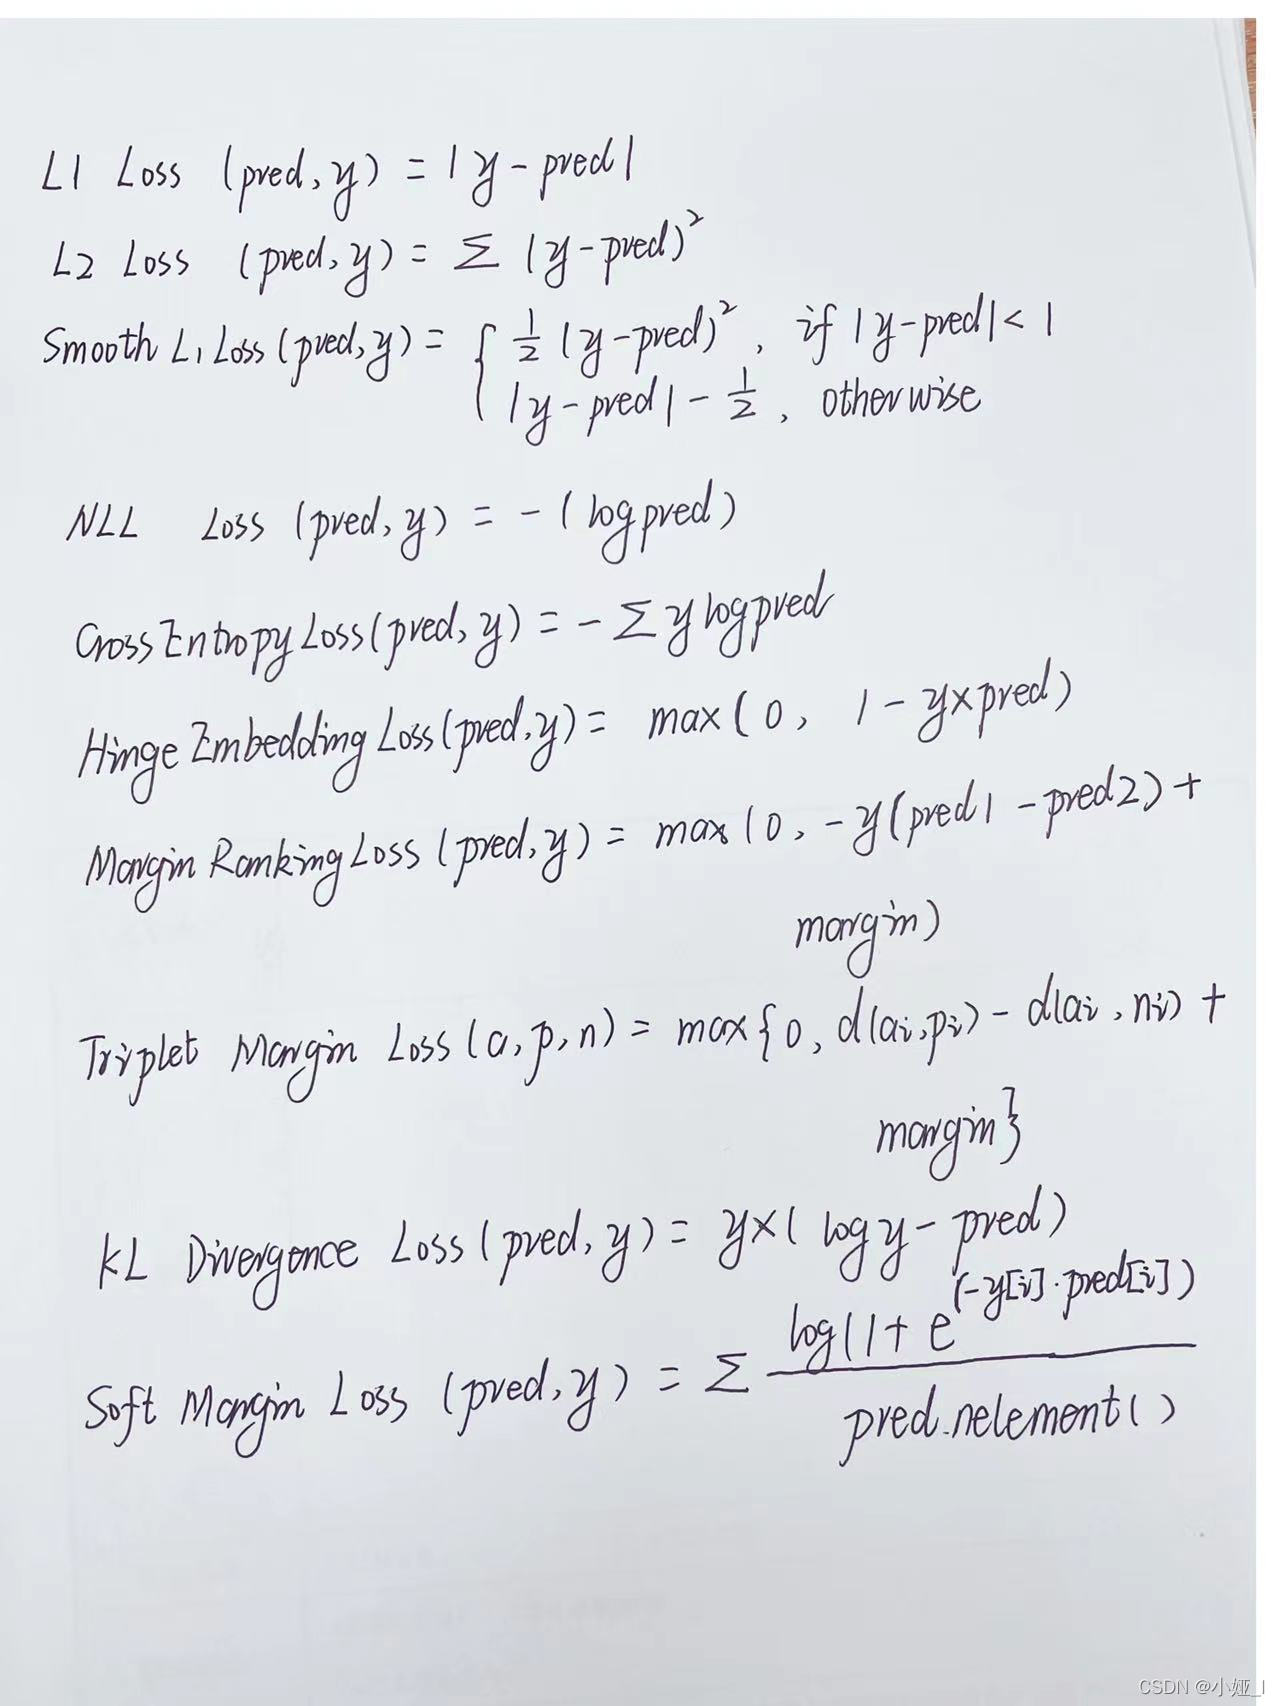 L1 Loss (pred, y) = |y - pred|
L2 Loss (pred, y) = Σ (y - pred)²
Smooth L1 Loss (pred, y) = { ½ (y - pred)², if |y - pred| < 1
|y - pred| - ½, otherwise
NLL Loss (pred, y) = - (log pred)
Cross Entropy Loss (pred, y) = - Σ y log pred
Hinge Embedding Loss (pred, y) = max (0, 1 - y × pred)
Margin Ranking Loss (pred, y) = max (0, - y (pred1 - pred2) +
margin)
Triplet Margin Loss (a, p, n) = max {0, d(ai, pi) - d(ai, ni) +
margin}
KL Divergence Loss (pred, y) = y × ( log y - pred)
Soft Margin Loss (pred, y) = Σ log(1 + e^(-y[i]·pred[i])
pred.nelement()
CSDN @小娅_l